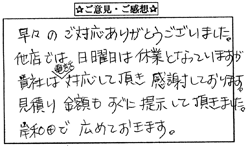 ☆ご意見・ご感想☆
早々のご対応ありがとうございました。
他店では、日曜日は休業となっていますが
貴社は迅速対応して頂き感謝しております。
見積り金額もすぐに提示して頂きました。
岸和田で広めておきます。